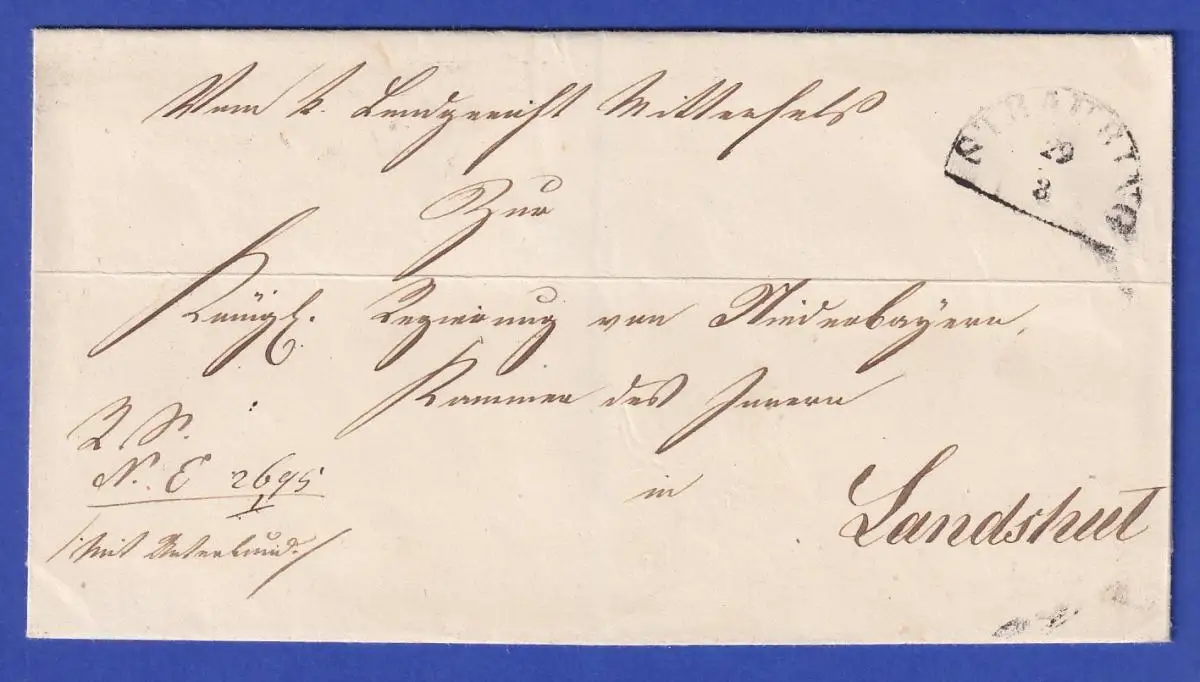 Vom k. Landgericht Mitterfels
STRAUBING
29
8
Zur
Königl. Regierung von Niederbayern,
Kammer des Innern
R. S.
N. E 2695
in
Landshut
/Mit Aktenbund./